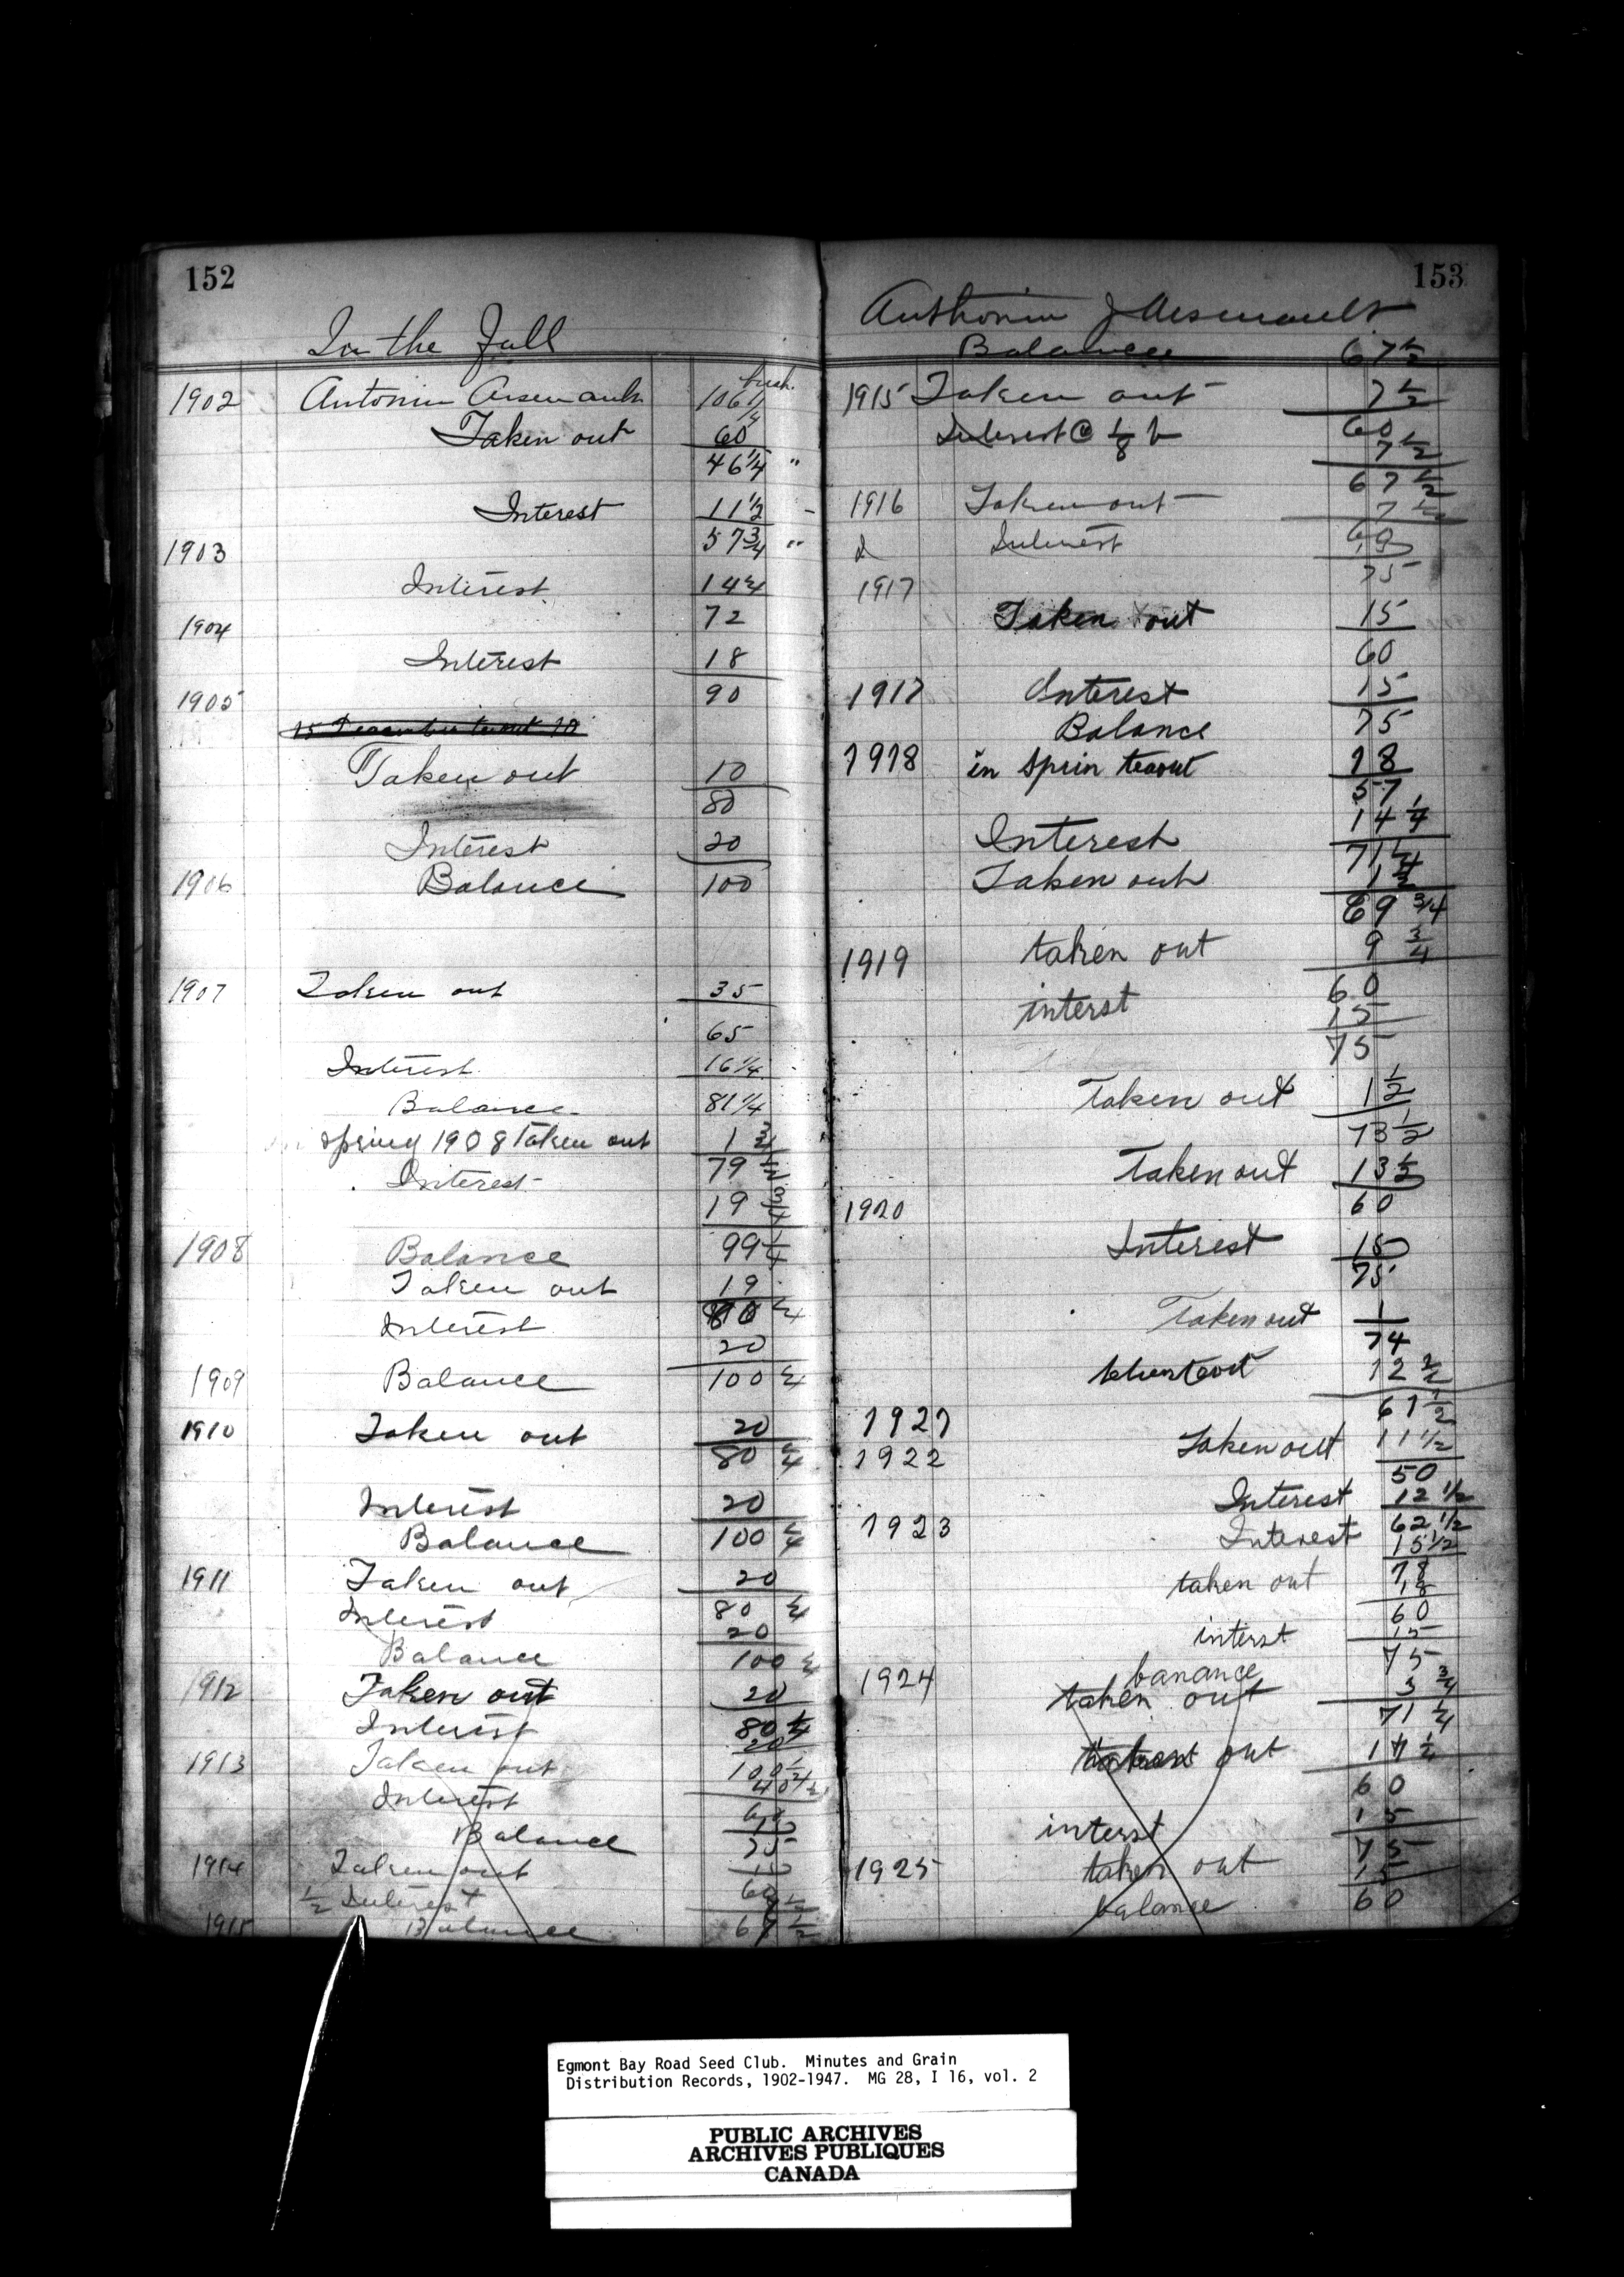 152
In the Fall
bush.
1902 Antonin Arsenault 106 1/4
Taken out 60
46 1/4 "
Interest 11 1/2 -
1903 57 3/4 "
Interest 14 1/4
1904 72
Interest 18
1905 90
Taken out 10
80
Interest 20
1906 Balance 100
1907 Taken out 35
65
Interest 16 1/4
Balance 81 1/4
in spring 1908 Taken out 1 3/4
79 1/2
Interest 19 3/4
1908 Balance 99 1/4
Taken out 19
80 1/4
Interest 20
1909 Balance 100 1/4
1910 Taken out 20
80 1/4
Interest 20
Balance 100 1/4
1911 Taken out 20
Interest 80 1/4
20
Balance 100 1/4
1912 Taken out 20
Interest 80 1/4
20
1913 Taken out 100 1/4
40 1/4
Interest 60
15
Balance 75
1914 Taken out 15
1/2 Interest 60
7 1/2
1915 Balance 67 1/2
153
Anthonin J Arsenault
Balance 67 1/2
1915 Taken out 7 1/2
Interest @ 1/8 b 60
7 1/2
67 1/2
1916 Taken out 7 1/2
Interest 60
15
75
1917
Taken out 15
60
1917 Interest 15
Balance 75
1918 in sprin teaout 18
57
Interest 14 1/4
71 1/4
Taken out 1 1/2
69 3/4
1919 taken out 9 3/4
60
interst 15
75
Taken out 1 1/2
73 1/2
Taken out 13 1/2
1920 60
Interest 15
75
Taken out 1
74
12 1/2
61 1/2
1921
1922 Taken out 11 1/2
50
Interest 12 1/2
1923 62 1/2
Interest 15 1/2
78
taken out 18
60
interst 15
75
1924 banance
taken out 3 3/4
71 1/4
out 11 1/4
60
interst 15
75
1925 taken out 15
balance 60
Egmont Bay Road Seed Club. Minutes and Grain
Distribution Records, 1902-1947. MG 28, I 16, vol. 2
PUBLIC ARCHIVES
ARCHIVES PUBLIQUES
CANADA